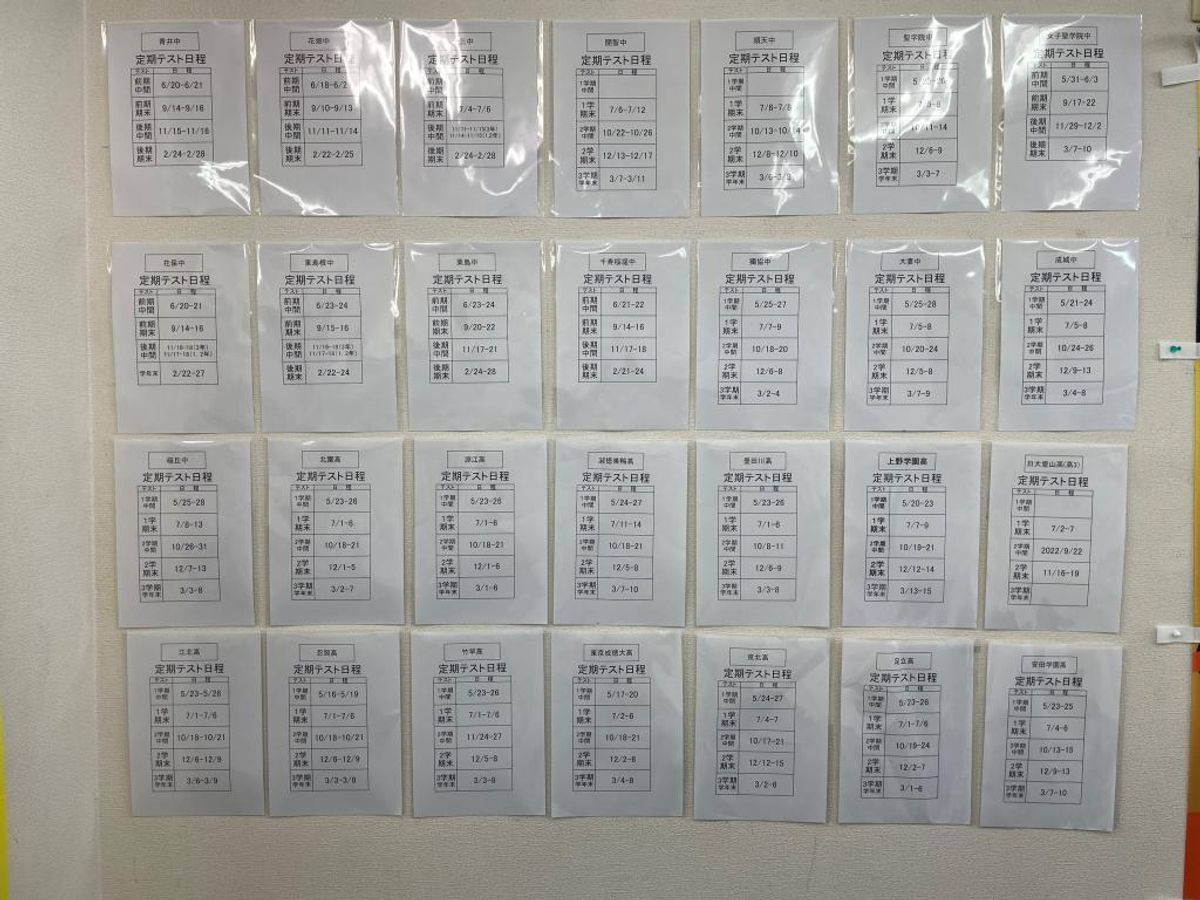 青井中
定期テスト日程
テスト 日 程
前期中間 6/20-6/21
前期期末 9/14-9/16
後期中間 11/15-11/16
後期期末 2/24-2/28
花畑中
定期テスト日程
テスト 日 程
前期中間
前期期末 9/10-9/13
後期中間 11/11-11/14
後期期末 2/22-2/25
定期テスト日程
テスト 日 程
前期中間
前期期末 7/4-7/6
後期中間
後期期末 2/24-2/28
開智中
定期テスト日程
テスト 日 程
1学期中間
1学期末 7/6-7/12
2学期中間 10/22-10/26
2学期末 12/13-12/17
3学期学年末 3/7-3/11
順天中
定期テスト日程
テスト 日 程
1学期中間
1学期末
2学期中間 10/13-10/14
2学期末 12/8-12/10
3学期学年末
聖学院中
定期テスト日程
テスト 日 程
1学期中間
1学期末
2学期中間
2学期末 12/6-9
3学期学年末 3/3-7
女子聖学院中
定期テスト日程
テスト 日 程
前期中間 5/31-6/3
前期期末 9/17-22
後期中間 11/29-12/2
後期期末 3/7-10
花保中
定期テスト日程
テスト 日 程
前期中間 6/20-21
前期期末 9/14-16
後期中間
学年末 2/22-27
東島根中
定期テスト日程
テスト 日 程
前期中間 6/23-24
前期期末 9/15-16
後期中間
後期期末 2/22-24
栗島中
定期テスト日程
テスト 日 程
前期中間 6/23-24
前期期末 9/20-22
後期中間 11/17-21
後期期末 2/24-28
千寿桜堤中
定期テスト日程
テスト 日 程
前期中間 6/21-22
前期期末 9/14-16
後期中間 11/17-18
後期期末 2/21-24
獨協中
定期テスト日程
テスト 日 程
1学期中間 5/25-27
1学期末 7/7-9
2学期中間 10/18-20
2学期末 12/6-8
3学期学年末 3/2-4
大妻中
定期テスト日程
テスト 日 程
1学期中間 5/25-28
1学期末 7/5-8
2学期中間 10/20-24
2学期末 12/5-8
3学期学年末 3/7-9
成城中
定期テスト日程
テスト 日 程
1学期中間 5/21-24
1学期末 7/5-8
2学期中間 10/24-26
2学期末 12/9-13
3学期学年末 3/4-8
桜丘中
定期テスト日程
テスト 日 程
1学期中間 5/25-28
1学期末 7/8-13
2学期中間 10/26-31
2学期末 12/7-13
3学期学年末 3/3-8
北園高
定期テスト日程
テスト 日 程
1学期中間 5/23-26
1学期末 7/1-6
2学期中間 10/18-21
2学期末 12/1-5
3学期学年末 3/2-7
淵江高
定期テスト日程
テスト 日 程
1学期中間 5/23-26
1学期末 7/1-6
2学期中間 10/18-21
2学期末 12/1-6
3学期学年末 3/1-6
定期テスト日程
テスト 日 程
1学期中間 5/24-27
1学期末 7/11-14
2学期中間 10/18-21
2学期末 12/5-8
3学期学年末 3/7-10
墨田川高
定期テスト日程
テスト 日 程
1学期中間 5/23-26
1学期末 7/1-6
2学期中間 10/8-11
2学期末 12/6-9
3学期学年末 3/3-8
上野学園高
定期テスト日程
テスト 日 程
1学期中間 5/20-23
1学期末 7/7-9
2学期中間 10/19-21
2学期末 12/12-14
3学期学年末 3/13-15
日大豊山高(高3)
定期テスト日程
テスト 日 程
1学期中間
1学期末 7/2-7
2学期中間 2022/9/22
2学期末 11/16-19
3学期学年末
江北高
定期テスト日程
テスト 日 程
1学期中間 5/23-5/26
1学期末 7/1-7/6
2学期中間 10/18-10/21
2学期末 12/6-12/9
3学期学年末 3/6-3/9
忍岡高
定期テスト日程
テスト 日 程
1学期中間 5/16-5/19
1学期末 7/1-7/6
2学期中間 10/18-10/21
2学期末 12/6-12/9
3学期学年末
竹早高
定期テスト日程
テスト 日 程
1学期中間 5/23-26
1学期末 7/1-7/6
2学期中間 11/24-27
2学期末 12/5-8
3学期学年末 3/3-8
東京成徳大高
定期テスト日程
テスト 日 程
1学期中間 5/17-20
1学期末 7/2-6
2学期中間 10/18-21
2学期末
3学期学年末 3/4-8
定期テスト日程
テスト 日 程
1学期中間 5/24-27
1学期末 7/4-7
2学期中間 10/17-21
2学期末 12/12-15
3学期学年末 3/2-6
足立高
定期テスト日程
テスト 日 程
1学期中間 5/23-26
1学期末 7/1-7/6
2学期中間 10/19-24
2学期末 12/2-7
3学期学年末 3/1-6
安田学園高
定期テスト日程
テスト 日 程
1学期中間 5/23-25
1学期末 7/4-6
2学期中間
2学期末 12/9-13
3学期学年末 3/7-10